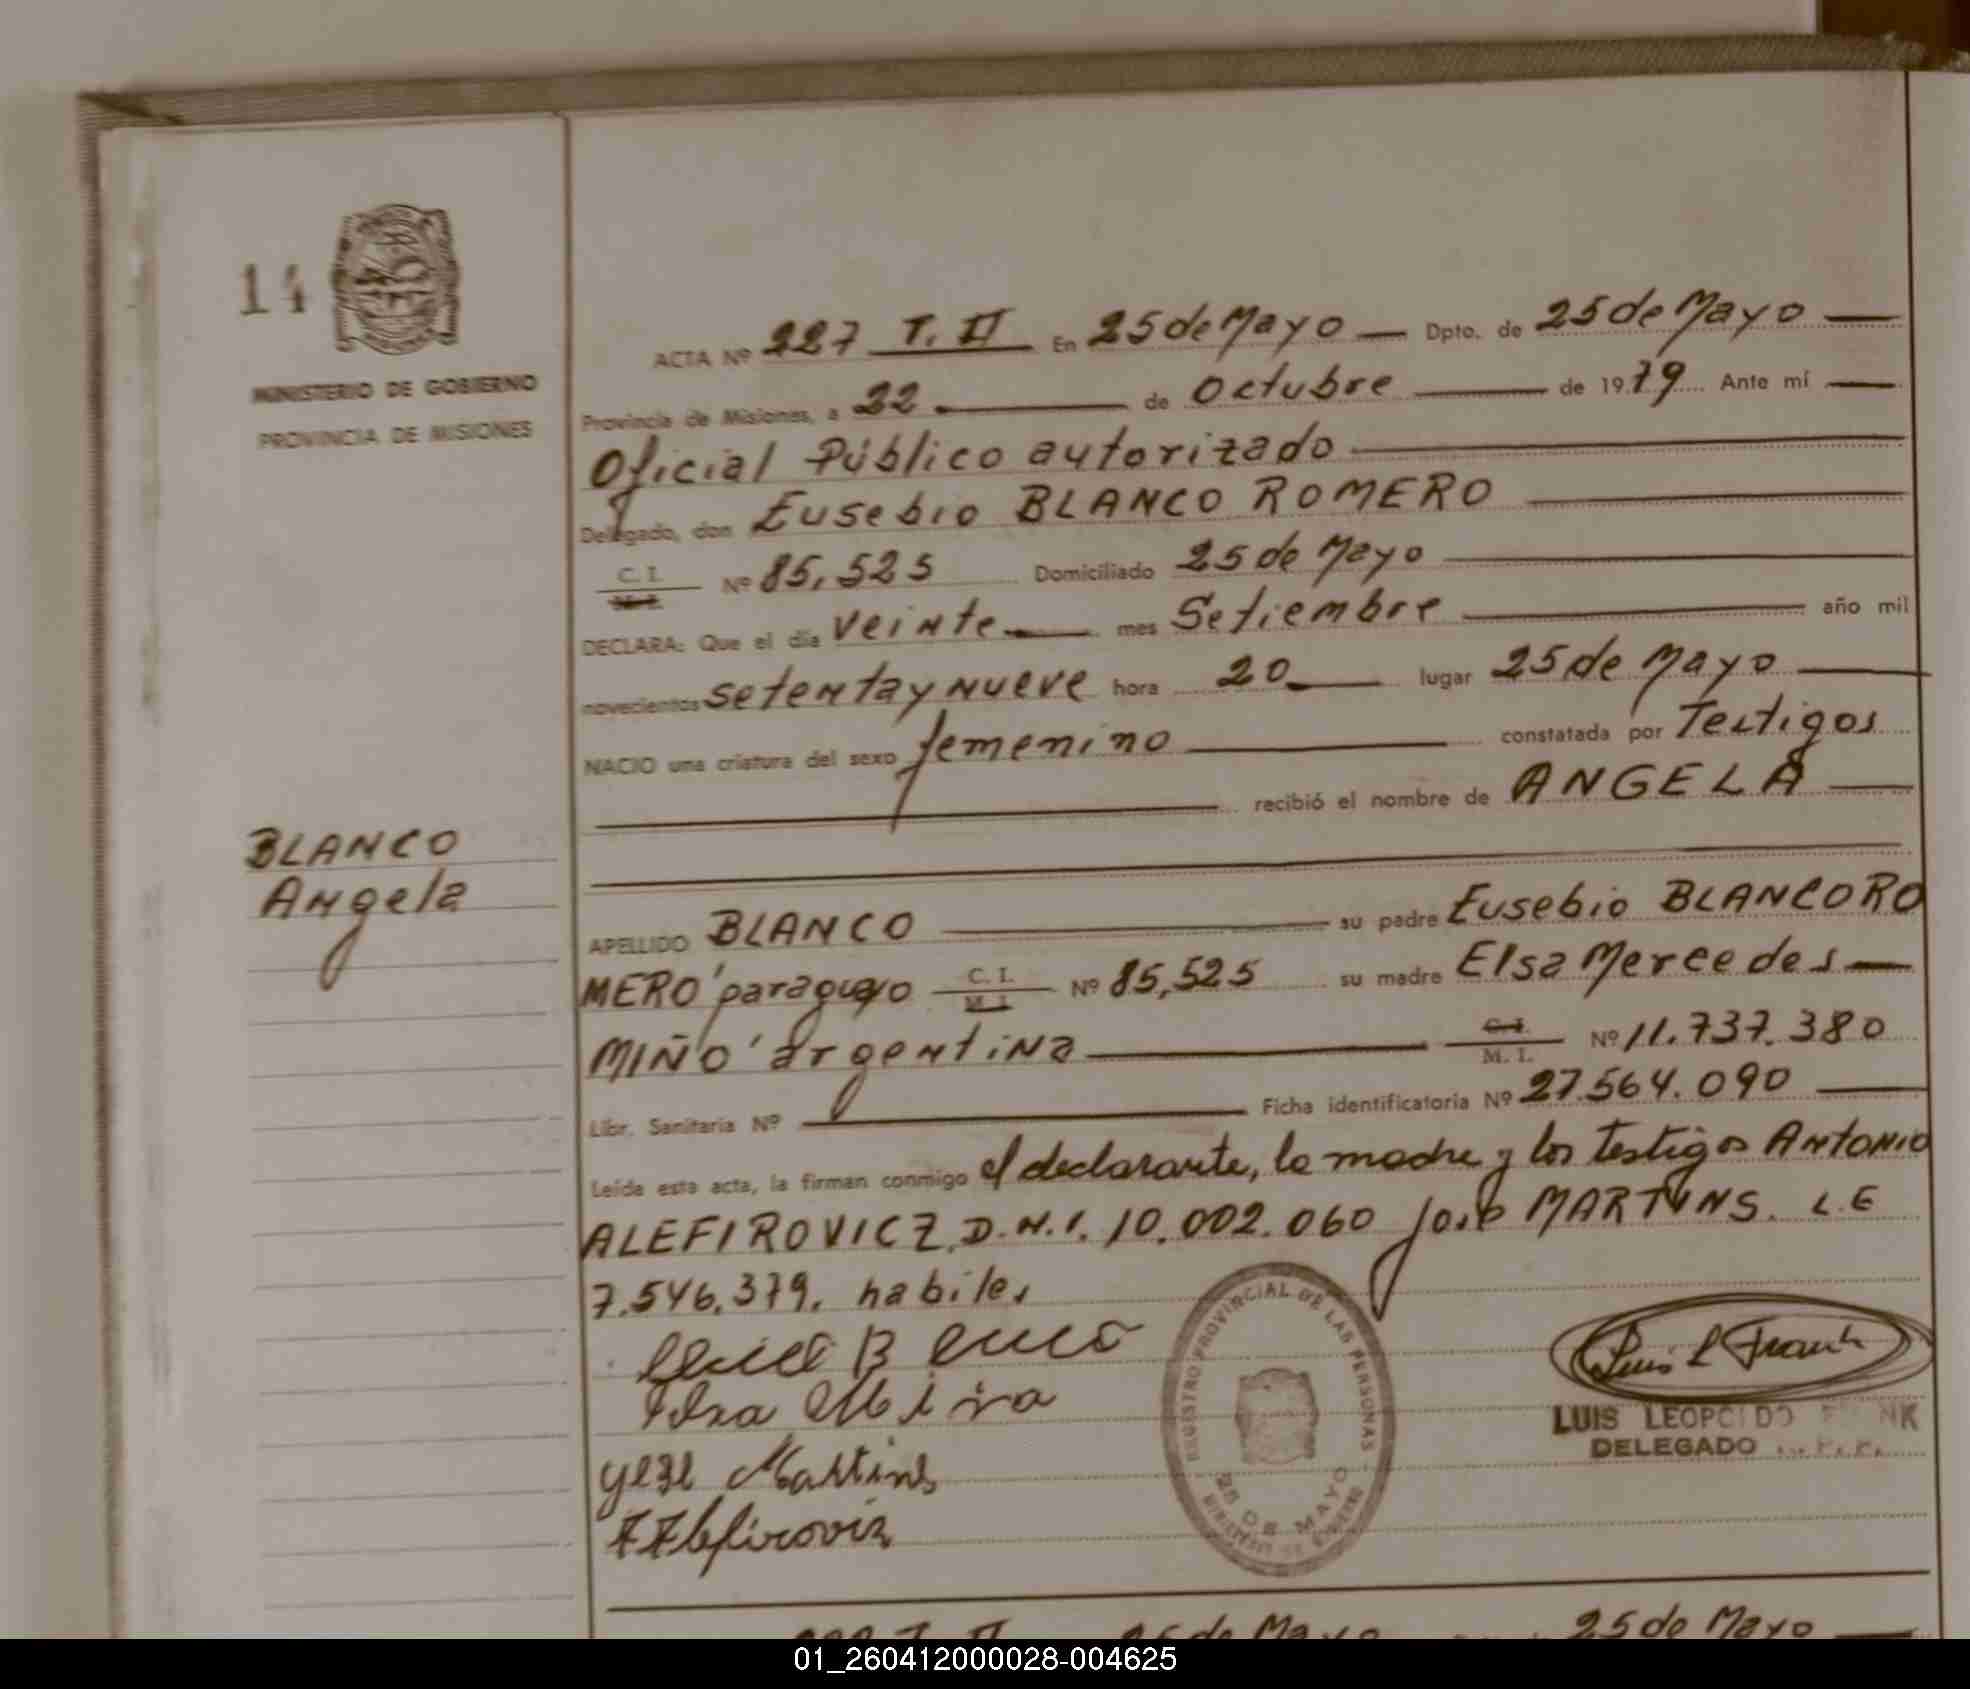 14
MINISTERIO DE GOBIERNO
PROVINCIA DE MISIONES
ACTA Nº 227 T. II En 25 de Mayo Dpto. de 25 de Mayo
Provincia de Misiones, a 22 de Octubre de 1979 Ante mí
Oficial Público autorizado
Delegado, don Eusebio BLANCO ROMERO
C. I.
M. I. Nº 85,525 Domiciliado 25 de Mayo
DECLARA: Que el día veinte mes Setiembre año mil
novecientos setenta y nueve hora 20 lugar 25 de Mayo
NACIO una criatura del sexo femenino constatada por Testigos
recibió el nombre de ANGELA
BLANCO
Angela
APELLIDO BLANCO su padre Eusebio BLANCO RO
MERO paraguayo C. I. M. I. Nº 85,525 su madre Elsa Mercedes
MIÑO argentina C. I. M. I. Nº 11.737.380
Libr. Sanitaria Nº Ficha identificatoria Nº 27.564.090
Leída esta acta, la firman conmigo el declarante, la madre y los testigos ANTONIO
ALEFIROVICZ, D.N.I. 10.002.060 José MARTINS. L.E
7.546.379. habiles
Martins
Luis L Frank
LUIS LEOPOLDO FRANK
DELEGADO
REGISTRO PROVINCIAL DE LAS PERSONAS
25 DE MAYO
MINISTERIO DE GOBIERNO
25 de Mayo 25 de Mayo
01_260412000028-004625